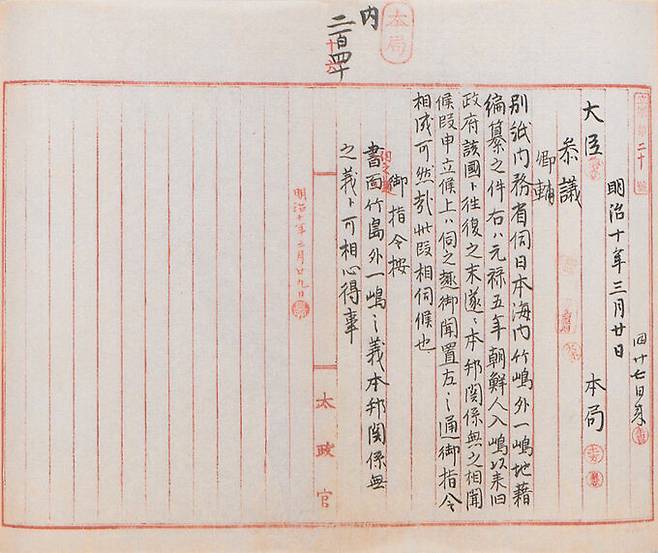 本局
内
二百四十
十六
四廿七日来
明治十年三月廿日
本局
大臣
参議
卿輔
別紙内務省伺日本海内竹嶋外一嶋地籍
編纂之件右ハ元禄五年朝鮮人入嶋以来旧
政府該国ト往復之末遂ニ本邦関係無之相聞
候段申立候上ハ伺之趣御聞置左之通御指令
相成可然哉此段相伺候也
御指令按
伺之趣
書面竹島外一嶋之義本邦関係無
之義ト可相心得事
明治十年三月廿九日
太政官